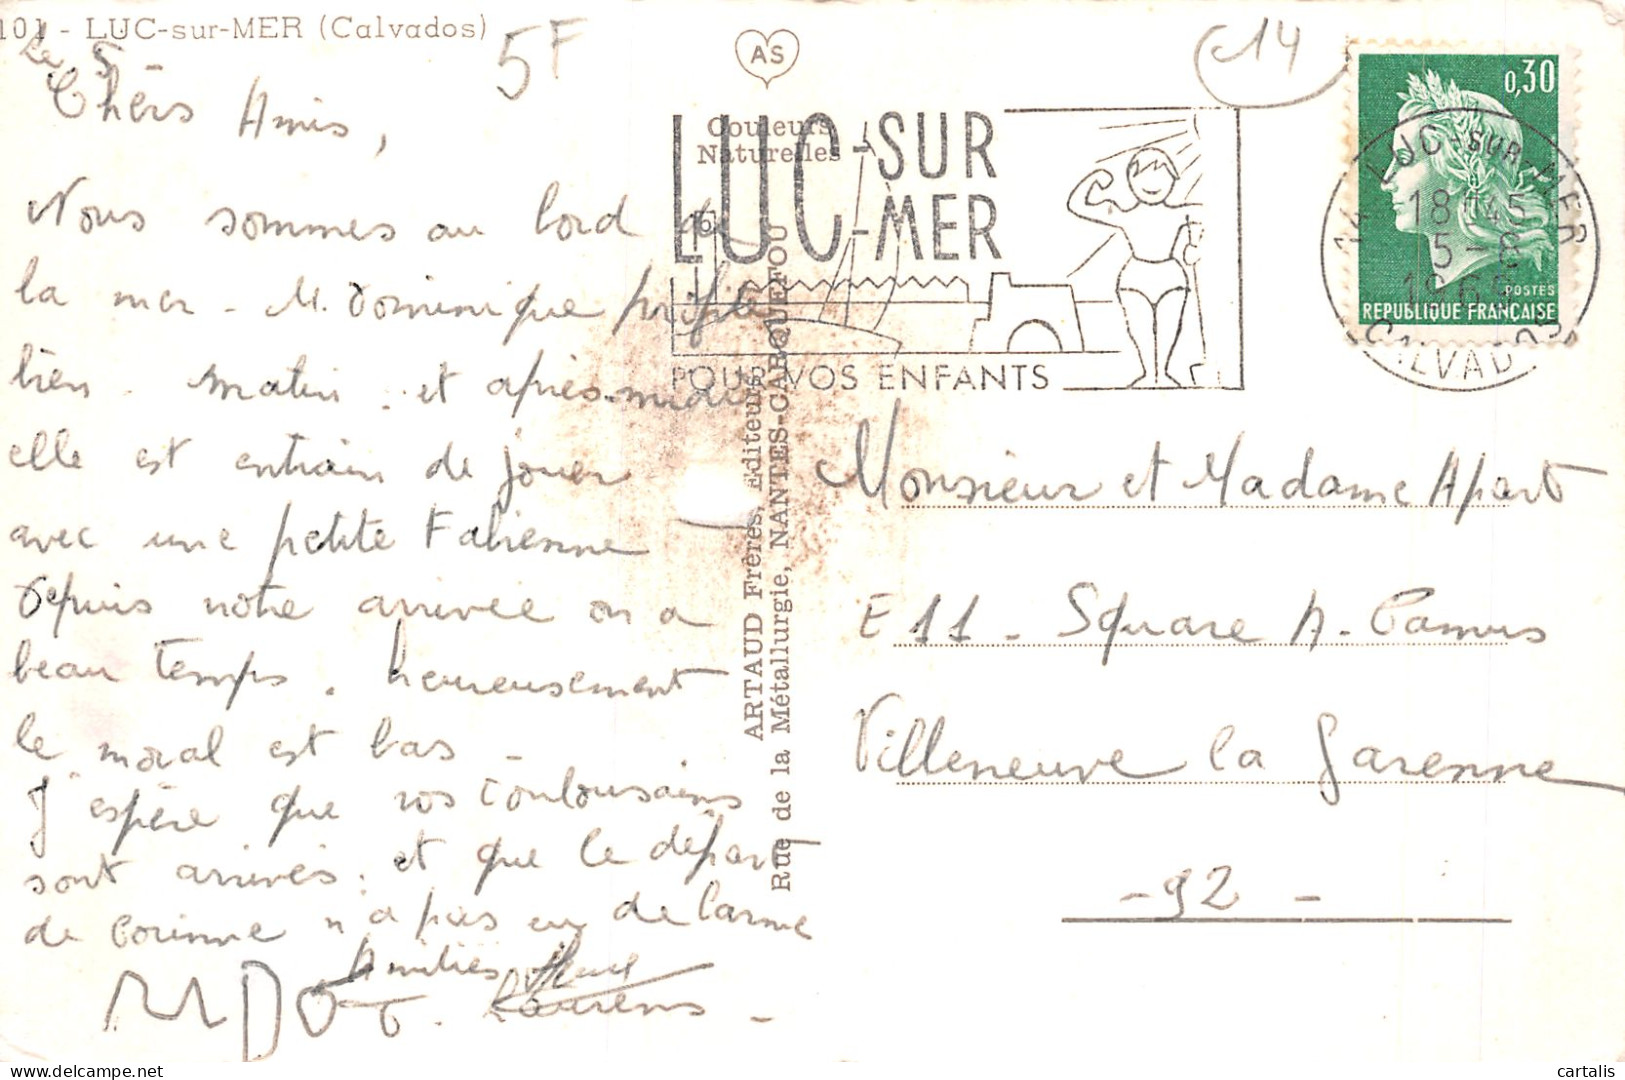 101 - LUC-sur-MER (Calvados)
Le 5 -
5F
C14
Chers Amis,
Nous sommes au bord de
la mer - M. Dominique profite
bien. Matin et après-midi
elle est entrain de jouer
avec une petite Fabienne
Depuis notre arrivée on a
beau temps. heureusement
le moral est bas -
J'espère que vos toulousains
sont arrivés. et que le départ
de Corinne n'a pas eu de larme
Amitiés
MDO
AS
Couleurs
Naturelles
ARTAUD Frères, Editeurs
Rue de la Métallurgie, NANTES-CARQUEFOU
LUC-SUR
-MER
POUR VOS ENFANTS
0,30
POSTES
REPUBLIQUE FRANÇAISE
14 LUC-SUR-MER
18H45
5-8
1969
CALVADOS
Monsieur et Madame Apart
E 11 - Square A. Camus
Villeneuve la Garenne
- 92 -
cartalis
delcampe.net